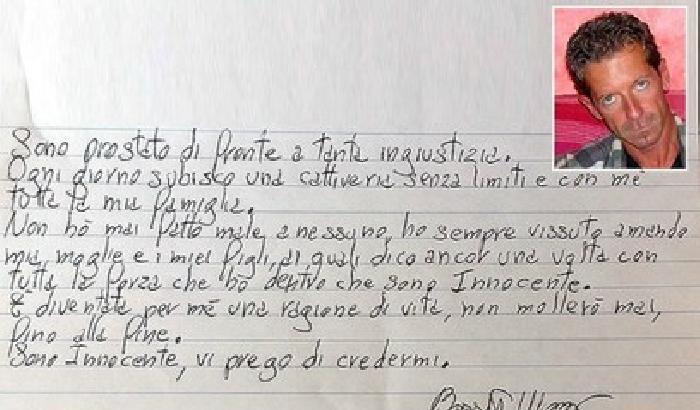 Sono prostato di fronte a tanta ingiustizia.
Ogni giorno subisco una cattiveria senza limiti e con mé
tutta la mia famiglia.
Non hò mai fatto male a nessuno, ho sempre vissuto amando
mia moglie e i miei figli, ai quali dico ancor una volta con
tutta la forza che hò dentro che sono Innocente.
È diventata per mé una ragione di vita, non mollerò mai,
fino alla fine.
Sono Innocente, vi prego di credermi.